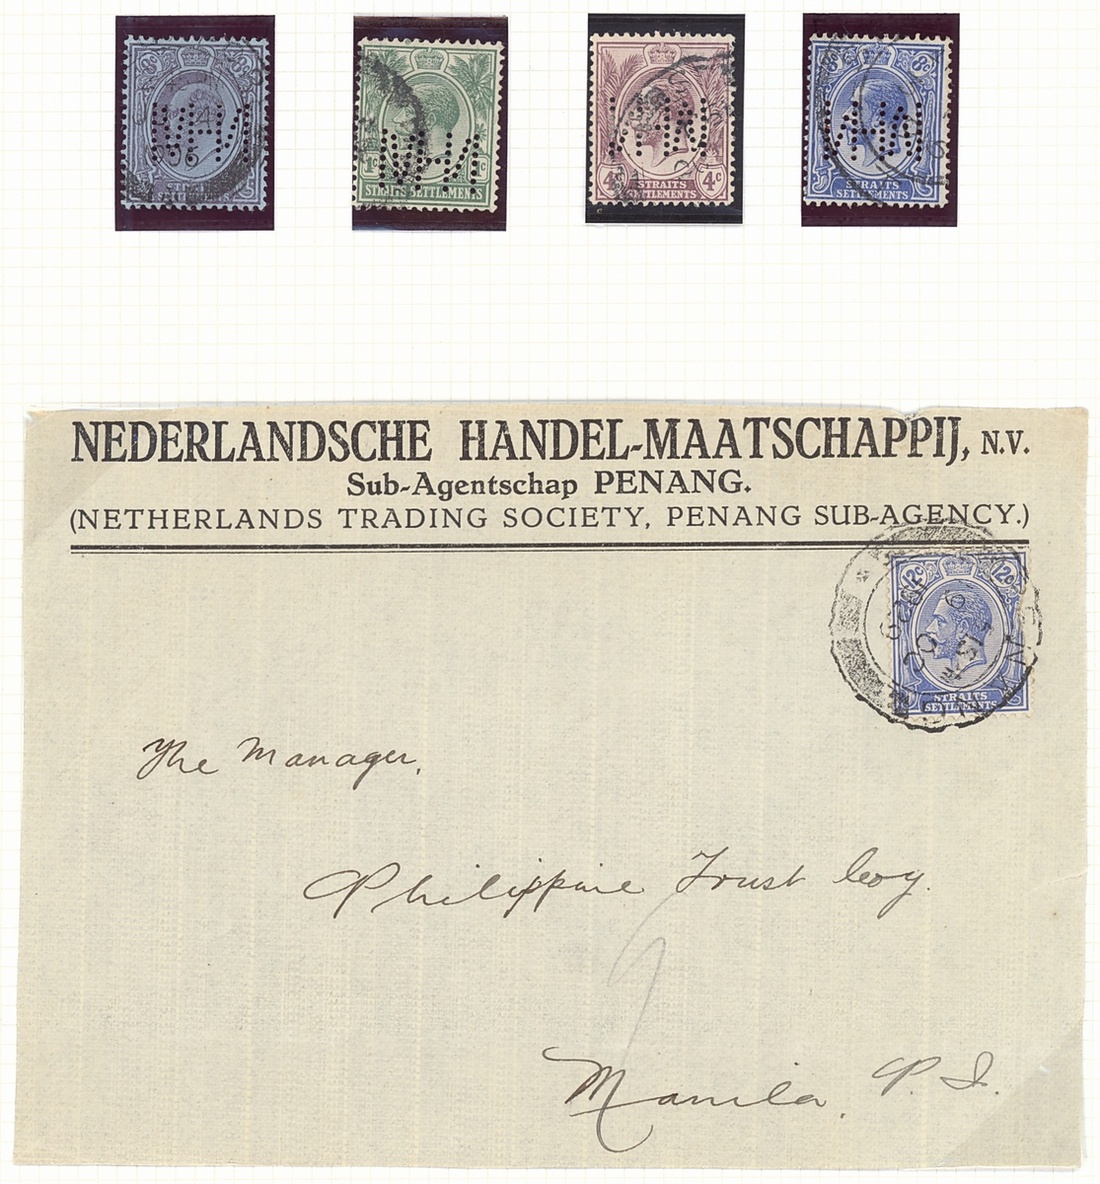 STRAITS SETTLEMENTS
4c 4c
STRAITS
SETTLEMENTS
8c 8c
STRAITS
SETTLEMENTS
NEDERLANDSCHE HANDEL-MAATSCHAPPIJ, N.V.
Sub-Agentschap PENANG.
(NETHERLANDS TRADING SOCIETY, PENANG SUB-AGENCY.)
12c 12c
STRAITS
SETTLEMENTS
The Manager,
Philippine Trust Coy.
Manila, P. I.